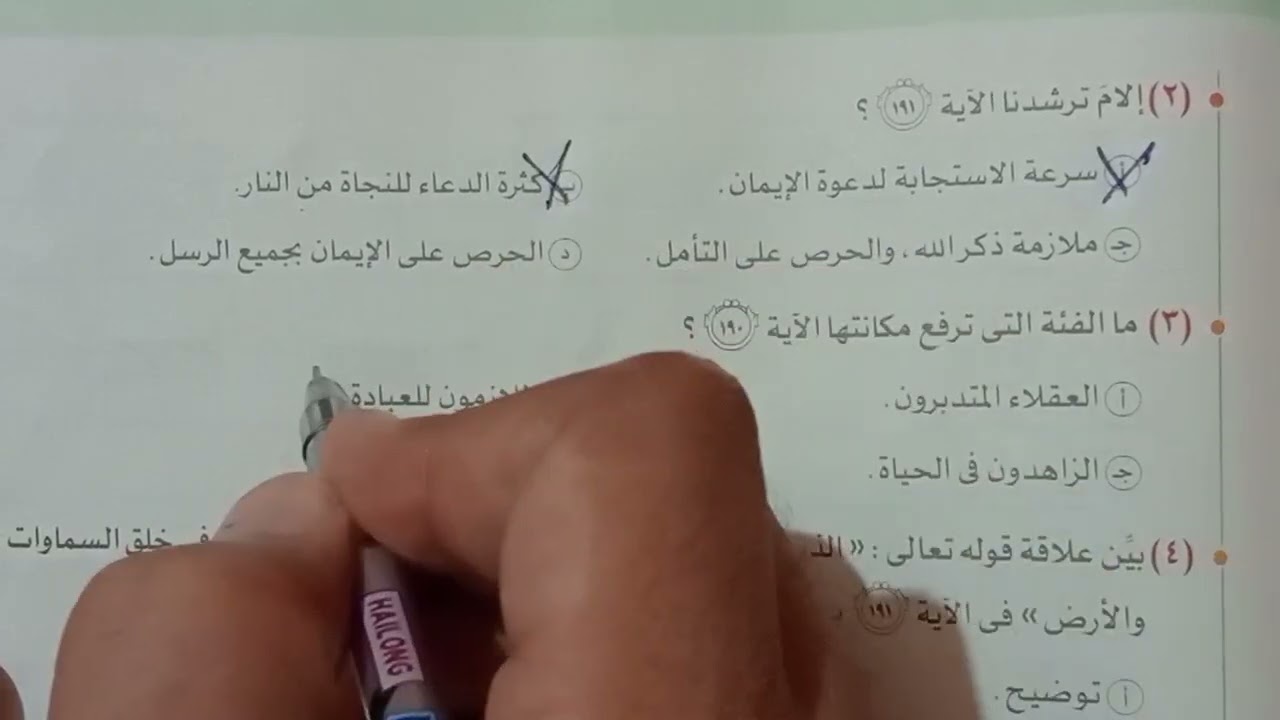 (٢) إلامَ ترشدنا الآية ١٩١ ؟
أ سرعة الاستجابة لدعوة الإيمان. ب كثرة الدعاء للنجاة من النار.
جـ ملازمة ذكر الله، والحرص على التأمل. د الحرص على الإيمان بجميع الرسل.
(٣) ما الفئة التى ترفع مكانتها الآية ١٩٠ ؟
أ العقلاء المتدبرون. للعبادة
جـ الزاهدون فى الحياة.
(٤) بيِّن علاقة قوله تعالى : « خلق السماوات
والأرض » فى الآية ١٩١
أ توضيح.
HAILONG